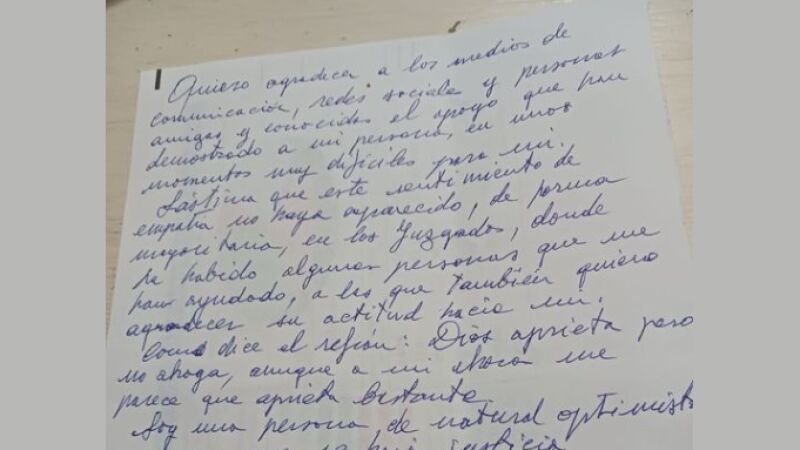 Quiero agradecer a los medios de
comunicación, redes sociales y personas
amigas y conocidas el apoyo que han
demostrado a mi persona, en unos
momentos muy difíciles para mí.
Lástima que este sentimiento de
empatía no haya aparecido, de forma
mayoritaria, en los Juzgados, donde
ha habido algunas personas que me
han ayudado, a las que también quiero
agradecer su actitud hacia mí.
Como dice el refrán: Dios aprieta pero
no ahoga, aunque a mí ahora me
parece que aprieta bastante.
Soy una persona de natural optimista
justicia